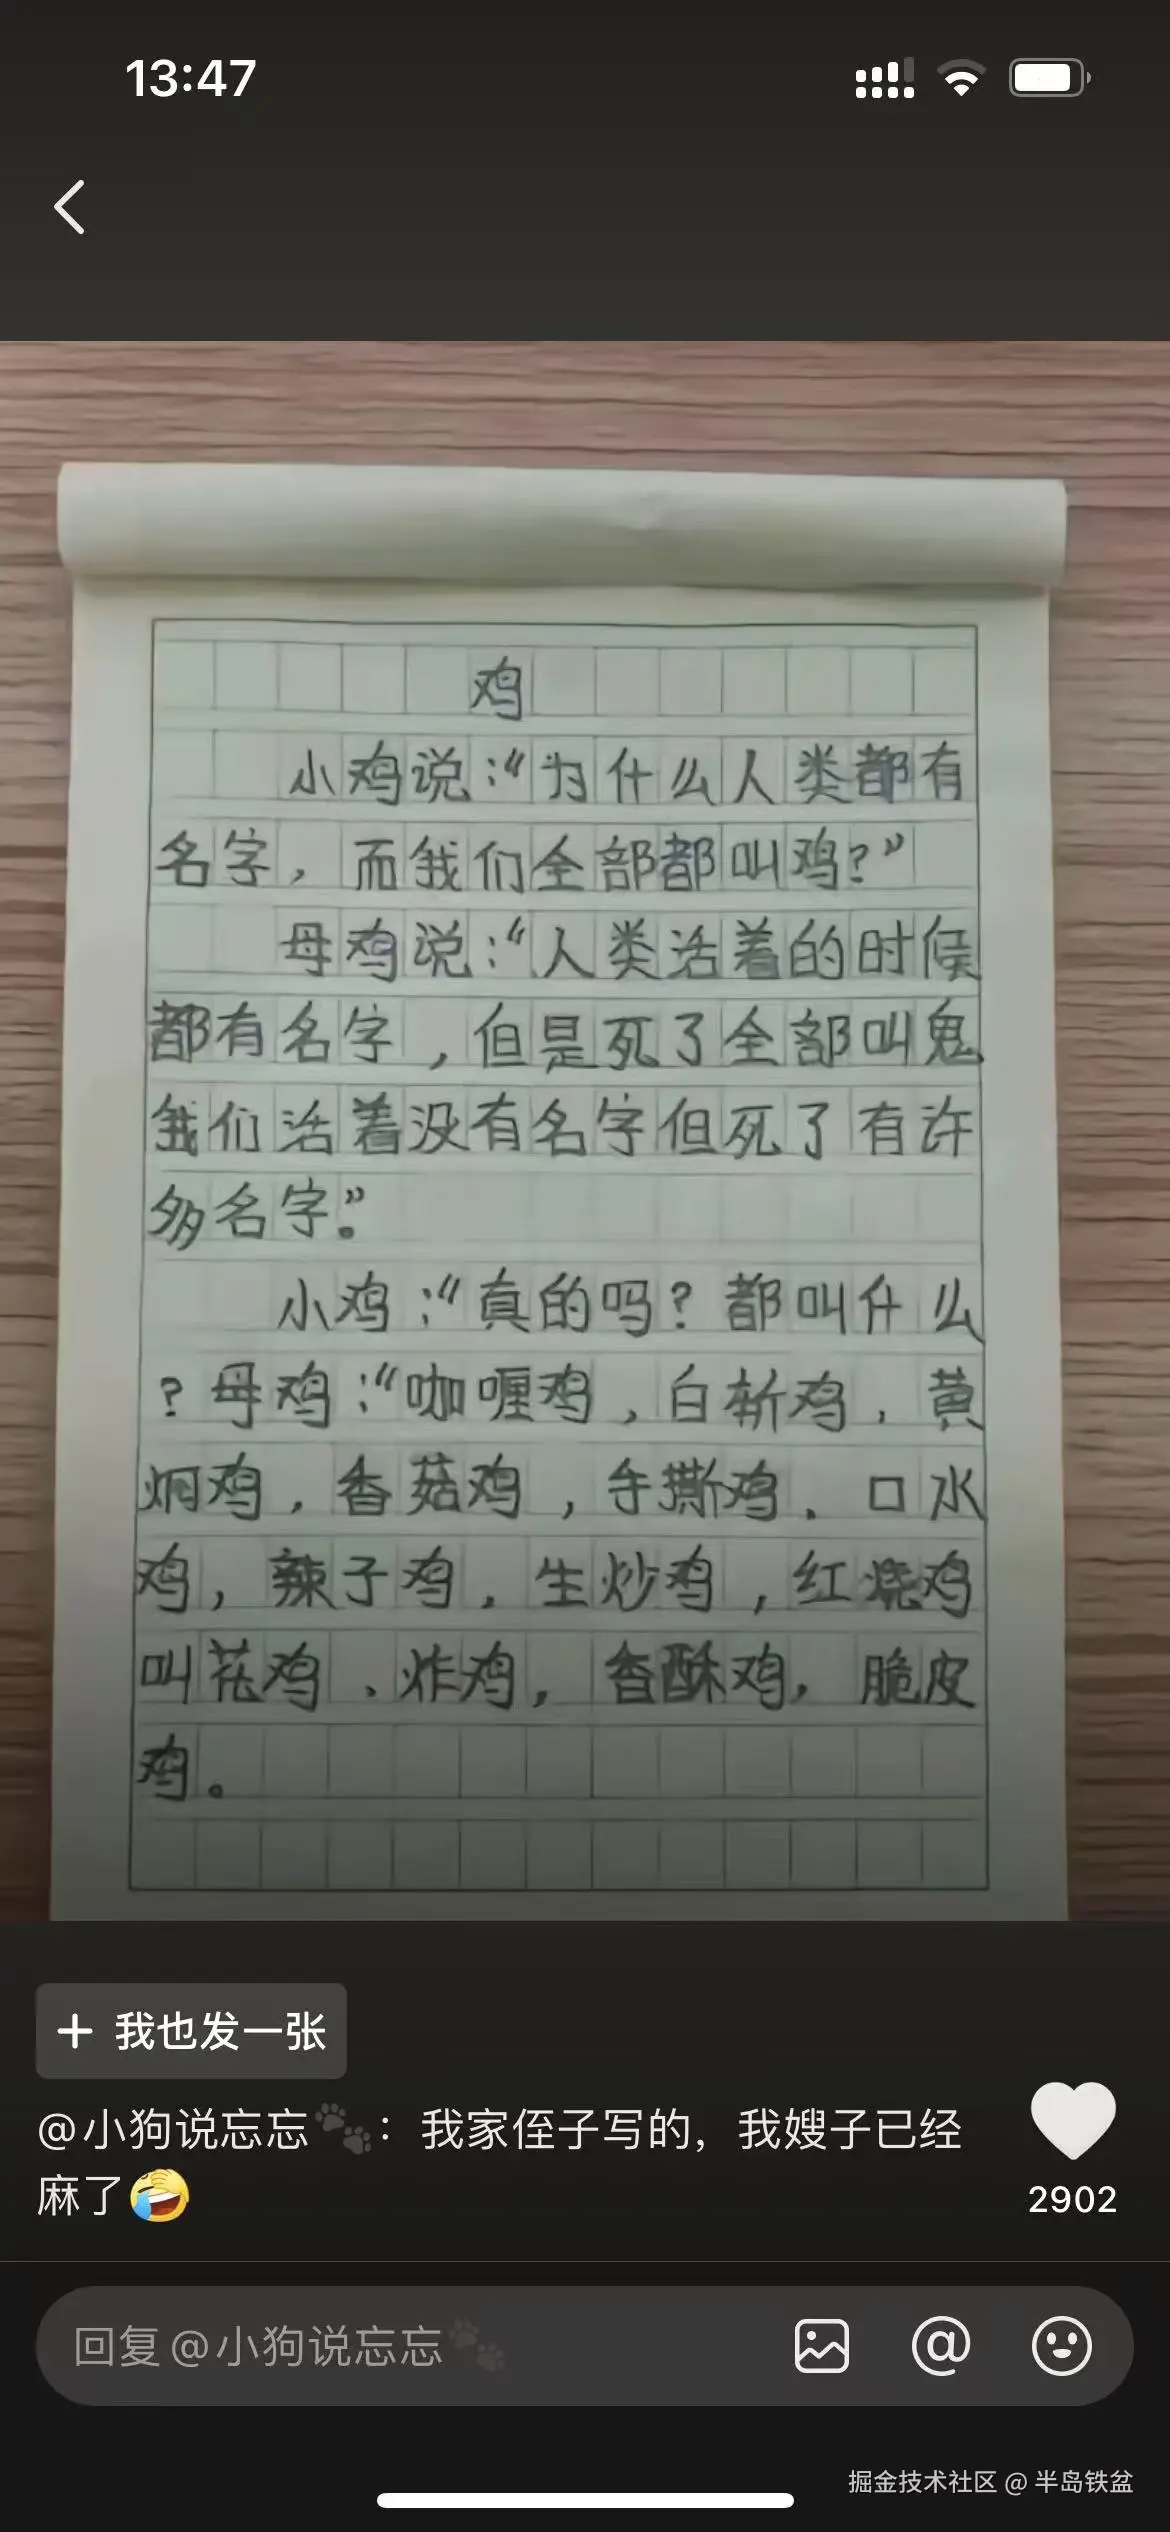 13:47
鸡
小鸡说:“为什么人类都有
名字，而我们全部都叫鸡?”
母鸡说:“人类活着的时候
都有名字，但是死了全部叫鬼
我们活着没有名字但死了有许
多名字。”
小鸡:“真的吗?都叫什么
?母鸡:“咖喱鸡，白斩鸡，黄
焖鸡，香菇鸡，手撕鸡．口水
鸡，辣子鸡．生炒鸡，红烧鸡
叫花鸡、炸鸡，香酥鸡，脆皮
鸡。
+ 我也发一张
@小狗说忘忘🐾：我家侄子写的，我嫂子已经
麻了🤣
2902
回复@小狗说忘忘🐾
掘金技术社区 @ 半岛铁盆